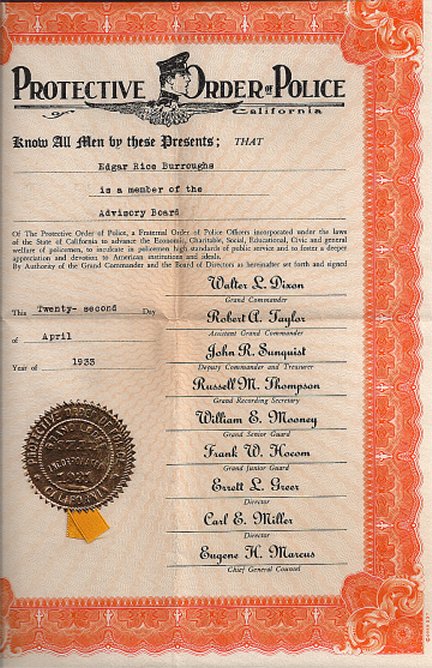 PROTECTIVE ORDER OF POLICE
California
Know All Men by these Presents; THAT
Edgar Rice Burroughs
is a member of the
Advisory Board
Of The Protective Order of Police, a Fraternal Order of Police Officers incorporated under the laws
of the State of California to advance the Economic, Charitable, Social, Educational, Civic and general
welfare of policemen, to inculcate in policemen high standards of public service and to foster a deeper
appreciation and devotion to American institutions and ideals.
By Authority of the Grand Commander and the Board of Directors as hereinafter set forth and signed
This Twenty- second Day
of April
Year of 1933
Walter L. Dixon
Grand Commander
Robert A. Taylor
Assistant Grand Commander
John R. Sunquist
Deputy Commander and Treasurer
Russell M. Thompson
Grand Recording Secretary
William E. Mooney
Grand Senior Guard
Frank W. Hocom
Grand Junior Guard
Errett L. Greer
Director
Carl E. Miller
Director
Eugene H. Marcus
Chief General Counsel
PROTECTIVE ORDER OF POLICE
GRAND LODGE
INCORPORATED
CALIFORNIA